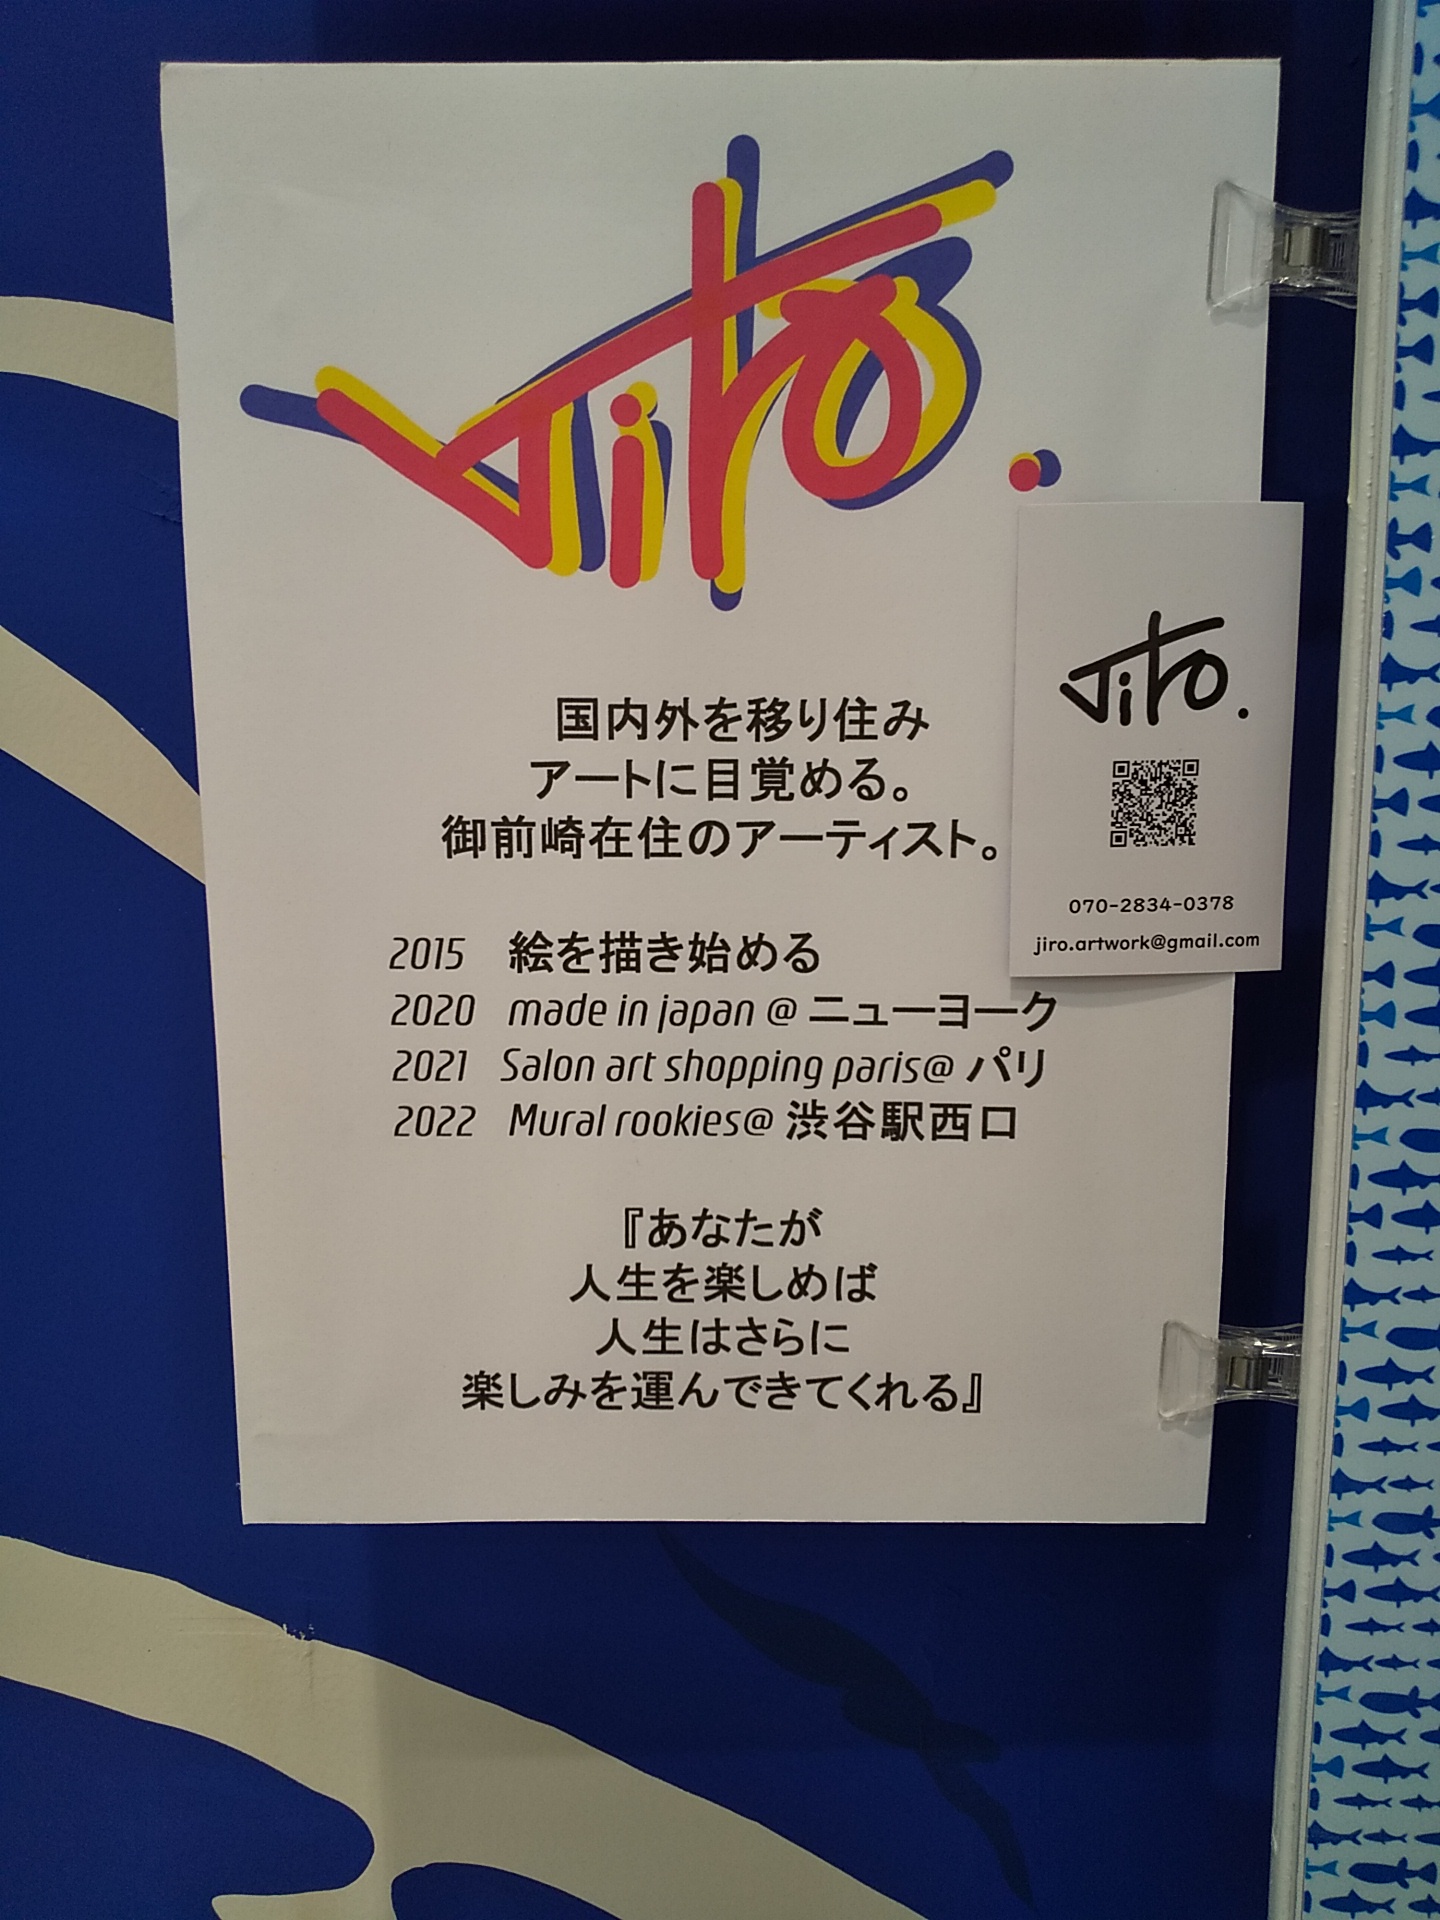 Jiro.
国内外を移り住み
アートに目覚める。
御前崎在住のアーティスト。
2015 絵を描き始める
2020 made in japan @ ニューヨーク
2021 Salon art shopping paris@ パリ
2022 Mural rookies@ 渋谷駅西口
『あなたが
人生を楽しめば
人生はさらに
楽しみを運んできてくれる』
Jiro.
070-2834-0378
jiro.artwork@gmail.com